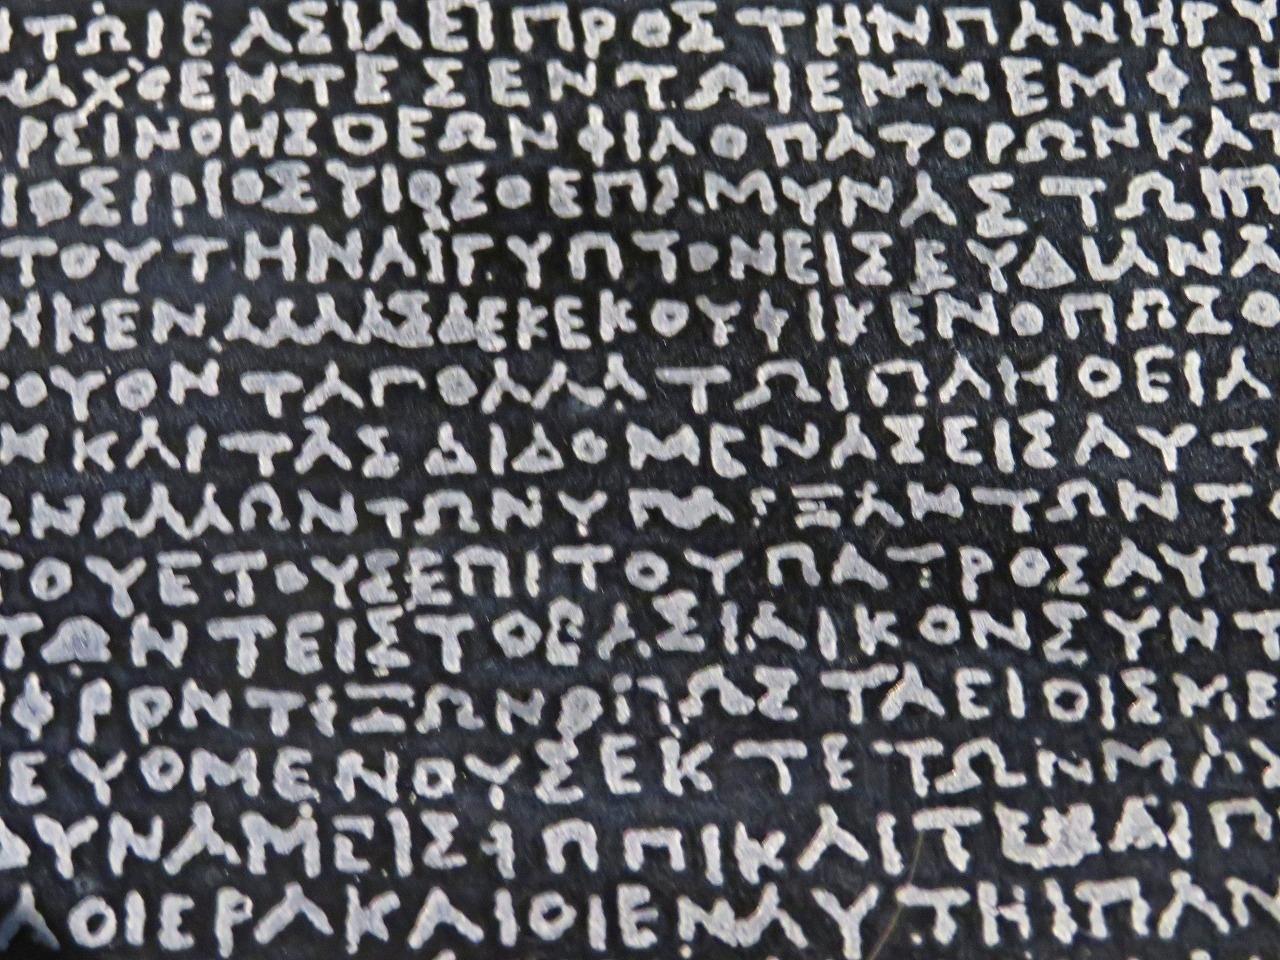 ΤΩΙΒΑΣΙΛΕΙΠΡΟΣΤΗΝΠΑΝΗΓΥ
ΑΧΘΕΝΤΕΣΕΝΤΩΙΕΜΜΕΜΦΕΙ
ΡΣΙΝΟΗΣΘΕΩΝΦΙΛΟΠΑΤΟΡΩΝΚΑΤ
ΙΟΣΙΡΙΟΣΥΙΟΣΟΕΠΑΜΥΝΑΣΤΩΙΠ
ΤΟΥΤΗΝΑΙΓΥΠΤΟΝΕΙΣΕΥΔΙΑΝΑ
ΗΚΕΝΑΛΛΑΣΔΕΚΕΚΟΥΦΙΚΕΝΟΠΩΣΟ
ΤΟΥΟΝΤΑΠΟΛΛΑΤΩΙΠΛΗΘΕΙΑ
ΝΚΑΙΤΑΣΔΙΔΟΜΕΝΑΣΕΙΣΑΥΤ
ΩΝΑΛΛΩΝΤΩΝΥΠΑΡΞΑΝΤΩΝΤΟ
ΤΟΥΕΤΟΥΣΕΠΙΤΟΥΠΑΤΡΟΣΑΥΤ
ΤΩΝΤΕΙΣΤΟΒΑΣΙΛΙΚΟΝΣΥΝΤ
ΦΡΟΝΤΙΖΩΝΟΠΩΣΤΑΕΙΘΙΣΜΕ
ΕΥΟΜΕΝΟΥΣΕΚΤΕΤΩΝΜΑΧ
ΔΥΝΑΜΕΙΣΙΠΠΙΚΑΙΤΕΚΑΙΠ
ΑΟΙΕΡΑΚΑΙΟΙΕΝΑΥΤΗΙΠΑΝ